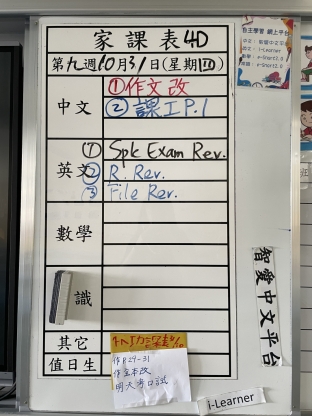 家課表4D
第九週10月31日(星期四)
中文
①作文改
②課工P.1
英文
① Spk Exam Rev.
② R. Rev.
③ File Rev.
數學
識
其它
值日生
29-31
明天考口試
智愛中文平台
i-Learner
自主學習 網上平台